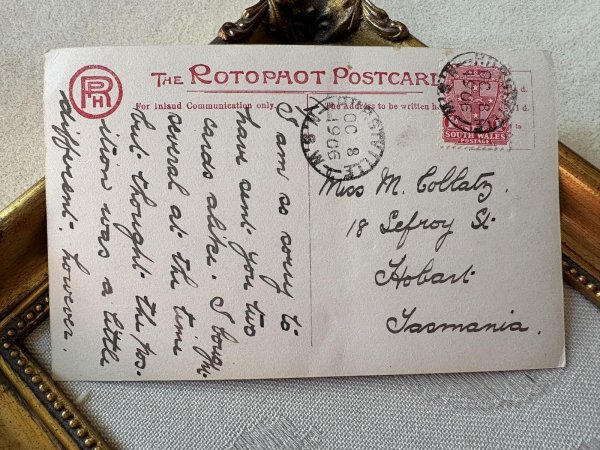 RPH
THE ROTOPHOT POSTCARD
For Inland Communication only.
The Address to be written h
d.
d.
to
HURSTVILLE
OC 8
1906
N.S.W
OC 8
1906
SOUTH WALES
POSTAGE
I am so sorry to
have sent you two
cards alike. I bough
several at the time
but thought the pos-
itions was a little
different. however.
Miss M. Collatz.
18 Lefroy St
Hobart
Tasmania.